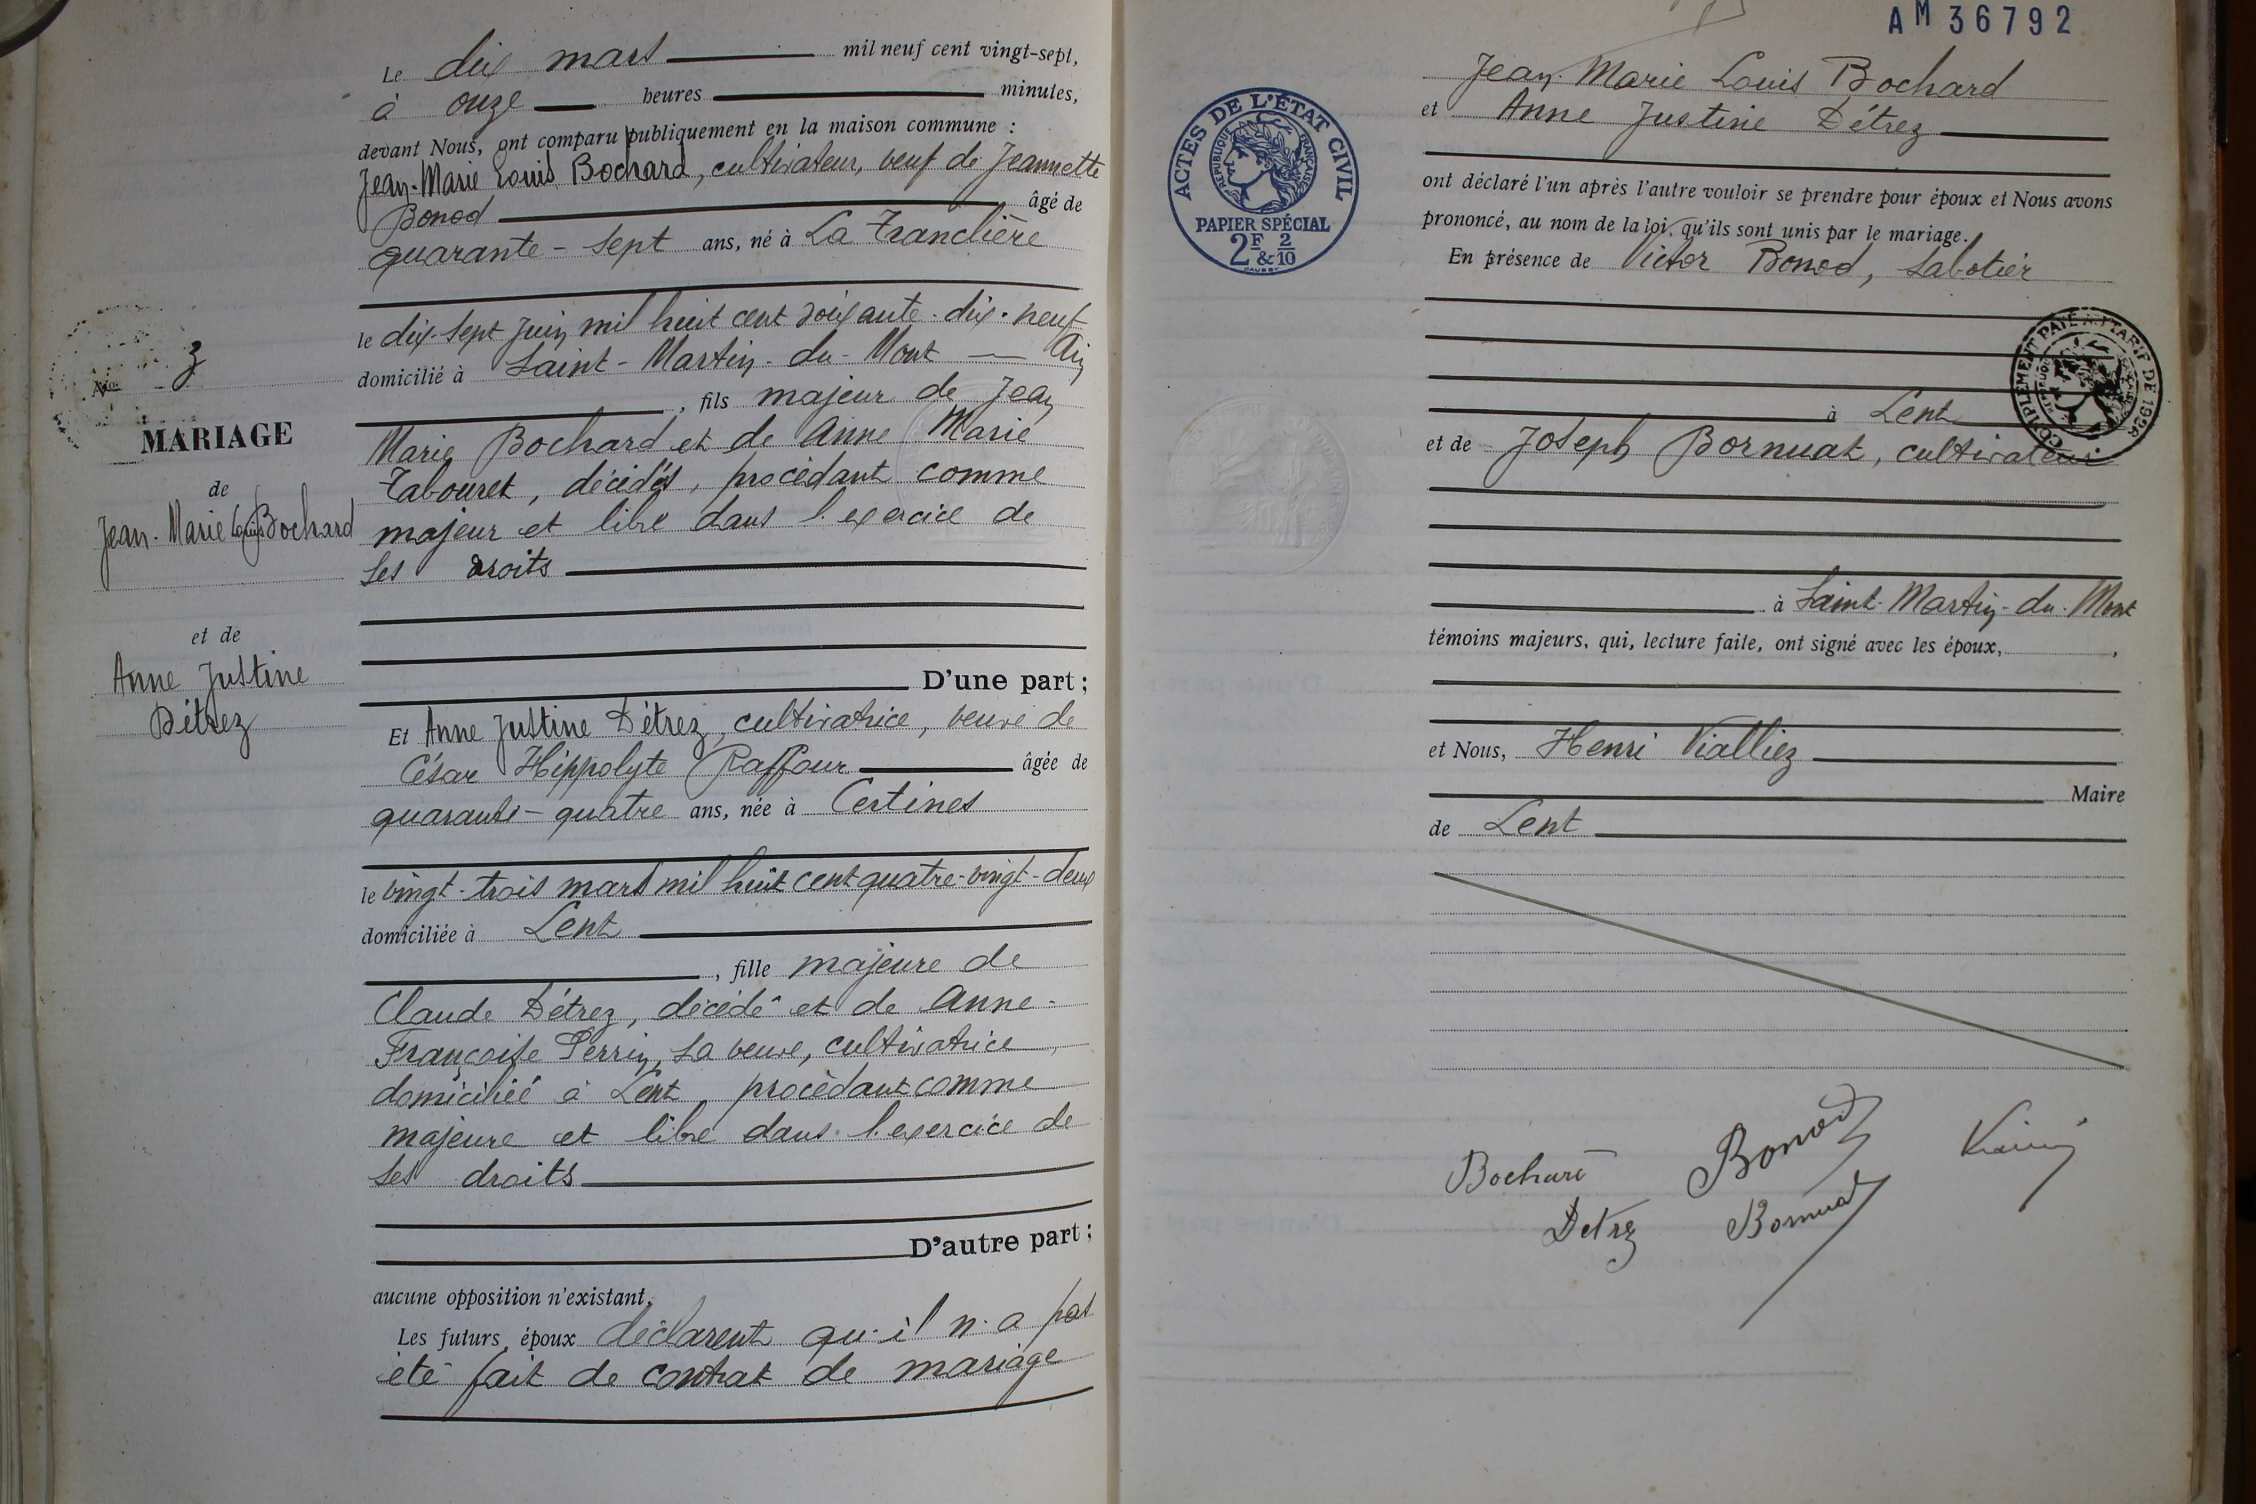 Le dix mars mil neuf cent vingt-sept,
à onze heures minutes,
devant Nous, ont comparu publiquement en la maison commune :
Jean-Marie Louis Bochard, cultivateur, veuf de Jeannette
Bonod âgé de
quarante-sept ans, né à La Tranclière
le dix-sept juin mil huit cent soixante-dix-neuf
domicilié à Saint-Martin-du-Mont — Ain
, fils majeur de Jean
Marie Bochard et de Anne Marie
Tabouret, décédés, procédant comme
majeur et libre dans l'exercice de
ses droits
D'une part ;
Et Anne Justine Détrez, cultivatrice, veuve de
César Hippolyte Raffour âgée de
quarante-quatre ans, née à Certines
le vingt-trois mars mil huit cent quatre-vingt-deux
domiciliée à Lent
, fille majeure de
Claude Détrez, décédé et de Anne-
Françoise Perrin, sa veuve, cultivatrice,
domiciliée à Lent, procédant comme
majeure et libre dans l'exercice de
ses droits
D'autre part ;
aucune opposition n'existant.
Les futurs époux déclarent qu'il n'a pas
été fait de contrat de mariage
N° 3
MARIAGE
de
Jean-Marie Louis Bochard
et de
Anne Justine
Détrez
AM 36792
ACTES DE L'ÉTAT CIVIL
RÉPUBLIQUE FRANÇAISE
PAPIER SPÉCIAL
2F & 2/10
Jean-Marie Louis Bochard
et Anne Justine Détrez
ont déclaré l'un après l'autre vouloir se prendre pour époux et Nous avons
prononcé, au nom de la loi, qu'ils sont unis par le mariage.
En présence de Victor Bonod, sabotier
COMPLÉMENT PAYÉ TARIF DE 1926
à Lent
et de Joseph Bornuat, cultivateur
à Saint-Martin-du-Mont
témoins majeurs, qui, lecture faite, ont signé avec les époux, ,
et Nous, Henri Vialliez
Maire
de Lent
Bochard
Bonod
Detrez
Bornuat